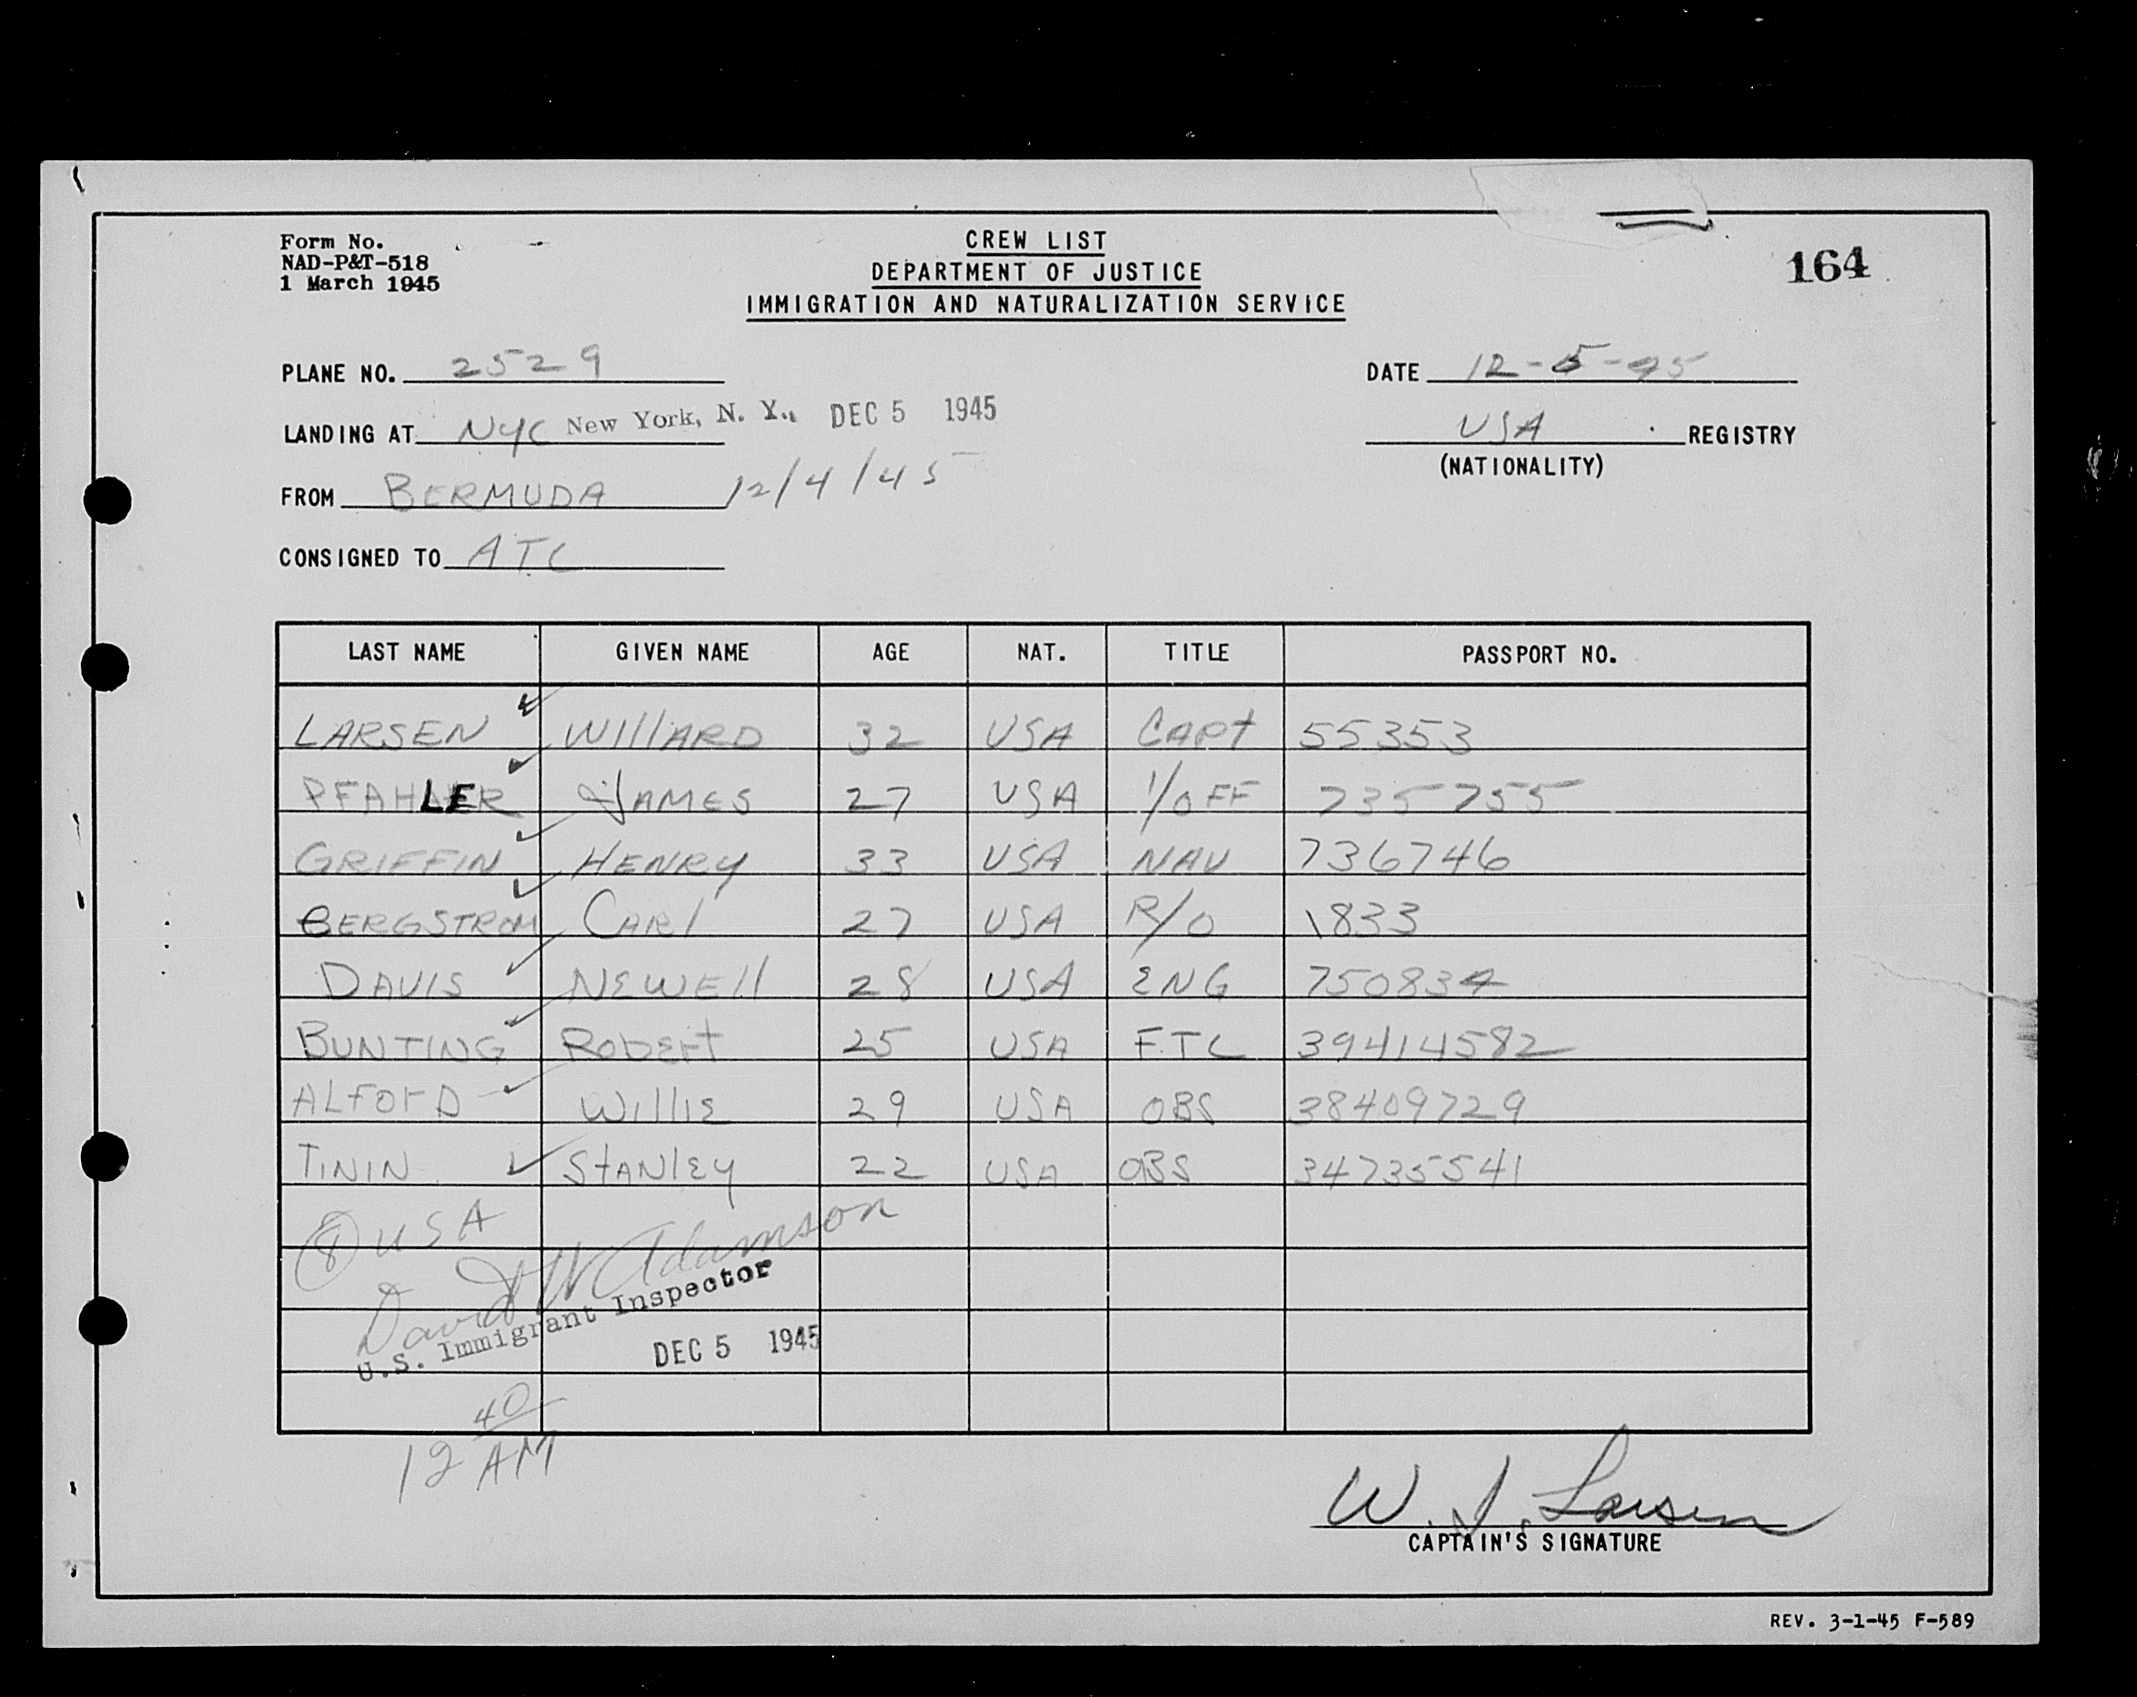 Form No.
NAD-P&T-518
1 March 1945
CREW LIST
DEPARTMENT OF JUSTICE
IMMIGRATION AND NATURALIZATION SERVICE
164
PLANE NO. 2529
DATE 12-5-45
LANDING AT NYC New York, N. Y., DEC 5 1945
USA REGISTRY
(NATIONALITY)
FROM BERMUDA 12/4/45
CONSIGNED TO ATC
LAST NAME GIVEN NAME AGE NAT. TITLE PASSPORT NO.
LARSEN WIllARD 32 USA CAPt 55353
PFAHLER JAMES 27 USA 1/OFF 735755
GRIFFIN HENRY 33 USA NAV 736746
BERGSTROM CARl 27 USA R/O 1833
DAVIS NEWEll 28 USA ENG 750834
BUNTING RobERt 25 USA F.T.C 39414582
ALFOrD WillIE 29 USA OBS 38409729
TININ StANlEy 22 USA OBS 34735541
8 USA
David W Adamson
U.S. Immigrant Inspector
DEC 5 1945
12 40 AM
W. J. Larsen
CAPTAIN'S SIGNATURE
REV. 3-1-45 F-589